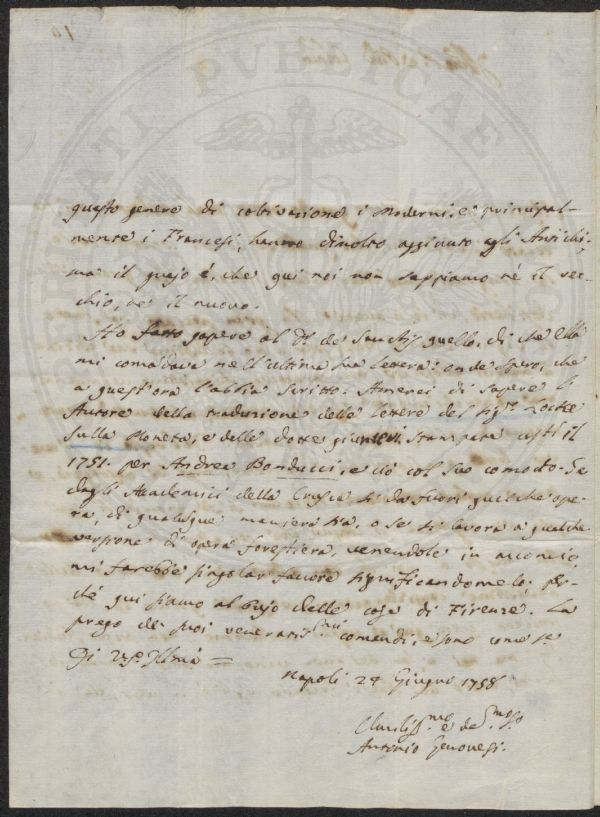 questo genere di coltivazione i Moderni, e principal-
mente i Francesi, hanno dimolto aggiunto agli Antichi;
ma il guajo é, che qui noi non sappiamo né il vec-
chio, né il nuovo.
Ho fatto sapere al Dr. de Sanctis quello, di che Ella
mi comandava nell'ultima sua lettera: onde spero, che
a quest'ora l'abbia scritto. Amerei di sapere l'
Autore della traduzione delle lettere del Sigr. Locke
sulla Moneta, e delle dotte giunte stampate costì il
1751. per Andrea Bonducci, e ciò col suo comodo. Se
dagli Academici della Crusca si da fuori qualche ope-
ra, di qualunque maniera sia, o se si lavora a qualche
versione di opera forestiera, venendole in acconcio,
mi farebbe singolar favore significandomelo; per-
ché qui siamo al bujo delle cose di Firenze. La
prego de' suoi veneratis.mi comandi, e sono come se.
Di VS. Illma =
Napoli 24 Giugno 1758
Umiliss.mo e de
Antonio Genovesi.
PUBLICAE